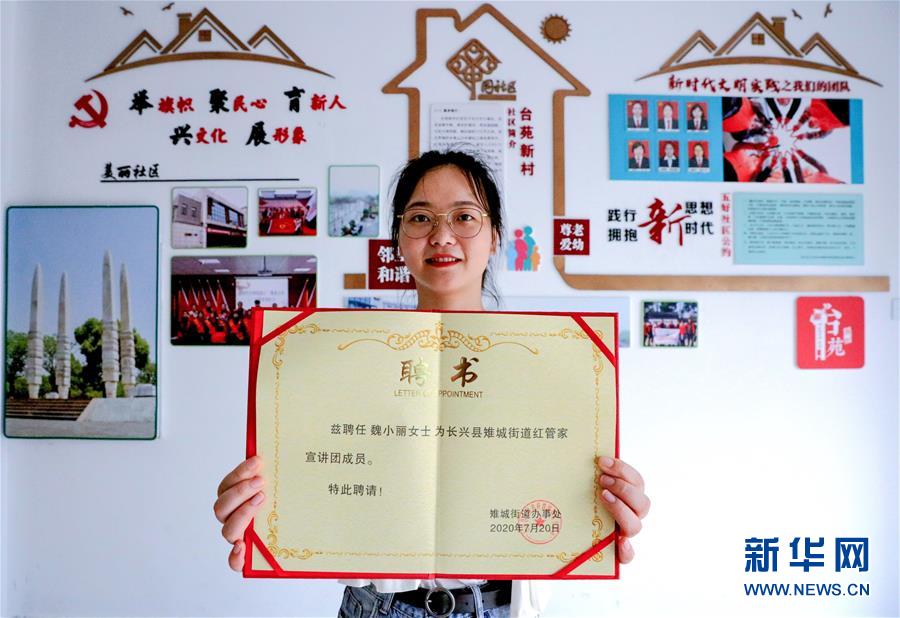 举旗帜 聚民心 育新人
兴文化 展形象
美丽社区
园社区
台苑新村
社区简介
新时代文明实践之我们的团队
践行
拥抱
新
思想
时代
五好社区公约
尊老
爱幼
和谐
台苑
聘书
LETTER OF APPOINTMENT
兹聘任 魏小丽女士 为长兴县雉城街道红管家
宣讲团成员。
特此聘请！
雉城街道办事处
2020年7月20日
新华网
WWW.NEWS.CN